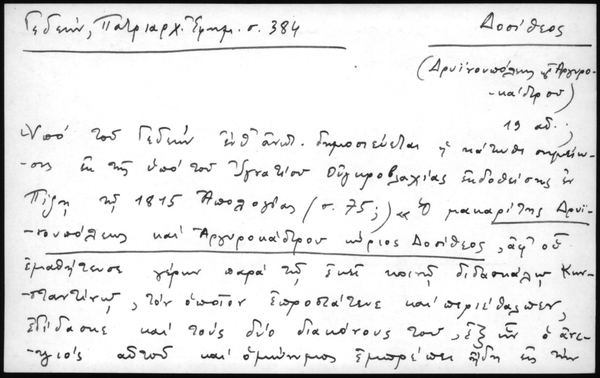 Γεδεών, Πατριαρχ. Ἐφημ. σ. 384
Δοσίθεος
(Δρυϊνουπόλεως καὶ Ἀργυρο-
-κάστρου)
19 αἰ.;
Ὑπὸ τοῦ Γεδεὼν ἐνθ' ἀνωτ. δημοσιεύεται ἡ κάτωθι σημείω-
-σις ἐκ τῆς ὑπὸ τοῦ Ἰγνατίου Οὐγκροβλαχίας ἐκδοθείσης ἐν
τῷ 1815 Ἀπολογίας (σ. 75;) «Ὁ μακαρίτης Δρυϊ-
-νουπόλεως καὶ Ἀργυροκάστρου κύριος Δοσίθεος, ἀφ' οὗ
ἐμαθήτευσε γέρων παρὰ τῷ ἐκεῖ κοινῷ διδασκάλῳ Κων-
-σταντίνῳ, τὸν ὁποῖον ἐπροστάτευε καὶ περιέθαλπεν,
ἐδίδασκε καὶ τοὺς δύο διακόνους του, ἐξ ὧν ὁ ἀνε-
-ψιὸς αὐτοῦ καὶ ὁμώνυμος ἐμπρέπει ἤδη εἰς τὴν